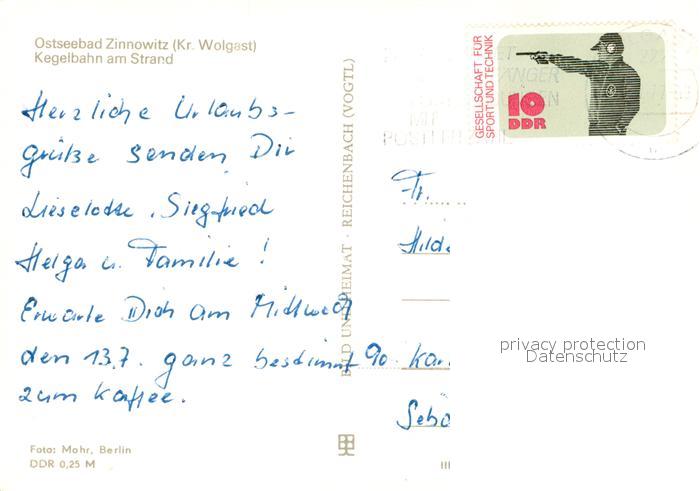 Ostseebad Zinnowitz (Kr. Wolgast)
Kegelbahn am Strand
Herzliche Urlaubs-
grüße senden Dir
Lieselotte, Siegfried
Helga u. Familie!
Erwarte Dich am Mittwoch
den 13.7. ganz bestimmt
zum Kaffee.
Foto: Mohr, Berlin
DDR 0,25 M
BILD UND HEIMAT · REICHENBACH (VOGTL)
GESELLSCHAFT FÜR
SPORT UND TECHNIK
10
DDR
MIT
Fr.
Hilde
90
Kar
Seb
III
privacy protection
Datenschutz